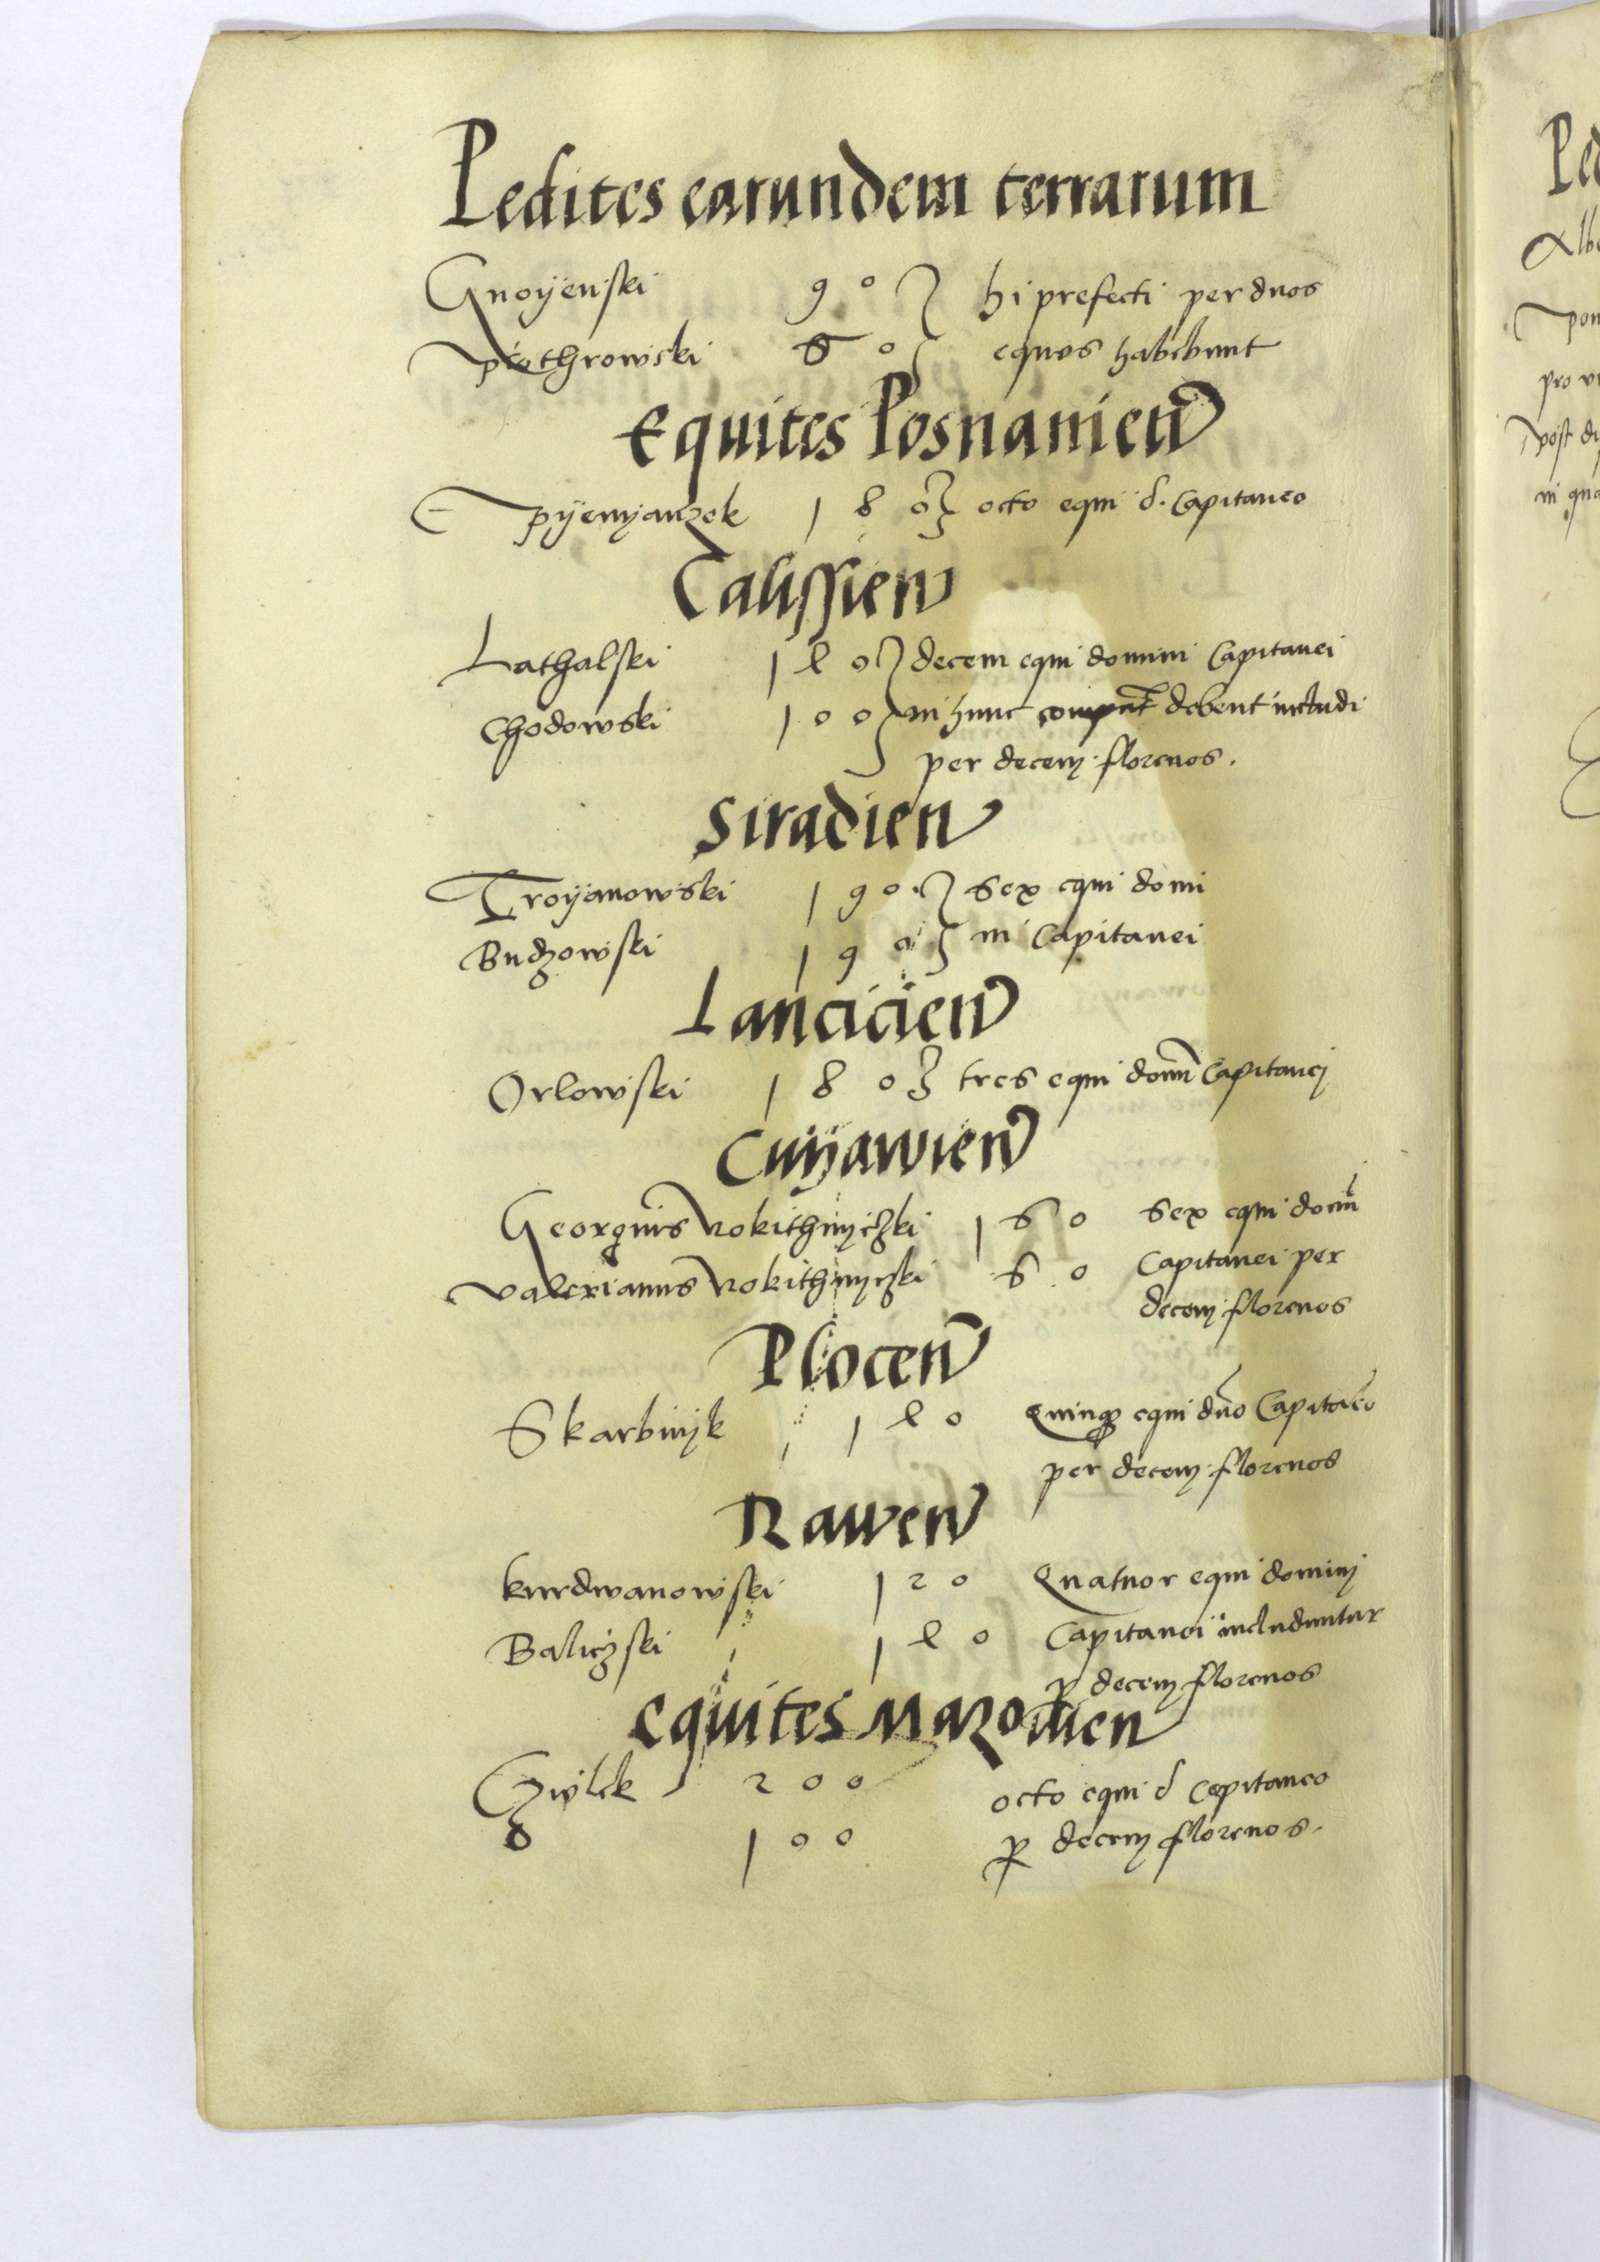 Pedites earundem terrarum
Gnoÿenski 90 hi prefecti per duos
piothrowski 60 equos habebunt
Equites Posnanien
pÿenÿanzek 180 octo equi d. Capitaneo
Calissien
Lathalski 1 l 0 decem equi domini Capitanei
Chodowski 100 in hunc debent includi
per decem florenos.
Siradien
Troÿanowski 190 Sex equi domi
Budzowski 190 ni Capitanei
Lancicien
Orlowski 180 tres equi domi Capitanei
Cuÿawien
Georgius Rokithnyczki 160 Sex equi domi
Valerianus Rokithnyczki 60 Capitanei per
decem florenos
Plocen
Skarbnyk 1 l 0 Quinque equi dno Capitaneo
per decem florenos
Rawen
kurdwanowski 120 Quatuor equi domini
Baliczski 1 l 0 Capitanei includuntur
p decem florenos
Equites Mazovien
Czwlek 200 octo equi d Capitaneo
100 p decem florenos.
Ped
Albe
pon
pro vn
post du
in qua